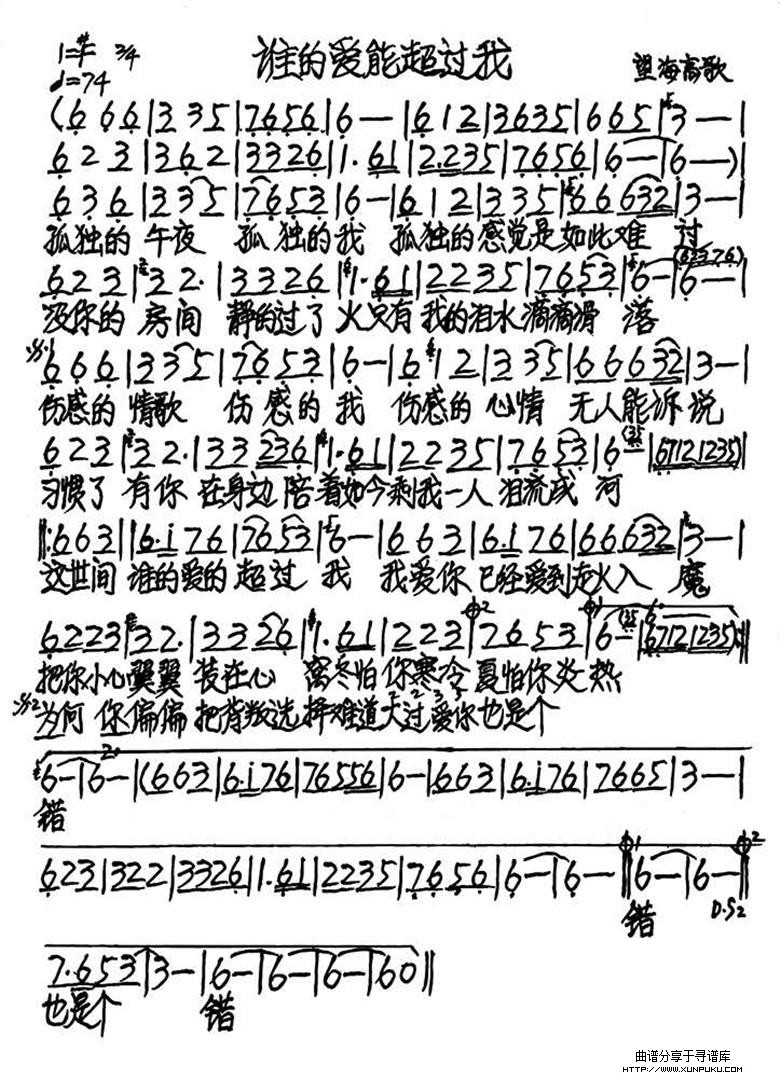 1=#F 3/4 谁的爱能超过我 望海高歌
♩=74
(6 6 6|3 3 5|7 6 5 6|6 —|6 1 2|3 6 3 5|6 6 5|3 —|
6 2 3|3 6 2|3 3 2 6|1· 6 1|2· 2 3 5|7 6 5 6|6 —|6 —)|
6 3 6|3 3 5|7 6 5 3|6 —|6 1 2|3 3 5|6 6 6 3 2|3 —|
孤独的 午夜 孤独的我 孤独的感觉是如此难 过
6 2 3|3 2·|3 3 2 6|1· 6 1|2 2 3 5|7 6 5 3|6 —|6 —|
没你的 房间 静的过了 火只有 我的泪水滴滴滑 落
6 6 6|3 3 5|7 6 5 3|6 —|6 1 2|3 3 5|6 6 6 3 2|3 —|
伤感的 情歌 伤感的 我 伤感的 心情 无人能诉 说
6 2 3|3 2·|3 3 2 3 6|1· 6 1|2 2 3 5|7 6 5 3|6 (35|6 7 1 2 1 2 3 5)||
习惯了 有你 在身边 陪着如今剩我一人 泪流成 河
||:6 6 3|6· i 7 6|7 6 5 3|6 —|6 6 3|6· i 7 6|6 6 6 3 2|3 —|
这世间 谁的爱的 超过 我 我爱你 已经爱到走火入 魔
6 2 2 3|3 2·|3 3 2 6|1· 6 1|2 2 3|7 6 5 3|6 (35|6 7 1 2 1 2 3 5):||
把你小心翼翼 装在心 窝冬怕 你寒冷 夏怕你炎 热
为何 你偏偏 把背叛选 择难道大过爱你也是个
6 —|6 —|(6 6 3|6· i 7 6|7 6 5 5 6|6 —|6 6 3|6· i 7 6|7 6 6 5|3 —|
错
6 2 3|3 2 2|3 3 2 6|1· 6 1|2 2 3 5|7 6 5 6|6 —|6 —||6 —|6 —||
错 D.S2
7· 6 5 3|3 —|6 —|6 —|6 —|6 0||
也是个 错
曲谱分享于寻谱库
HTTP://WWW.XUNPUKU.COM